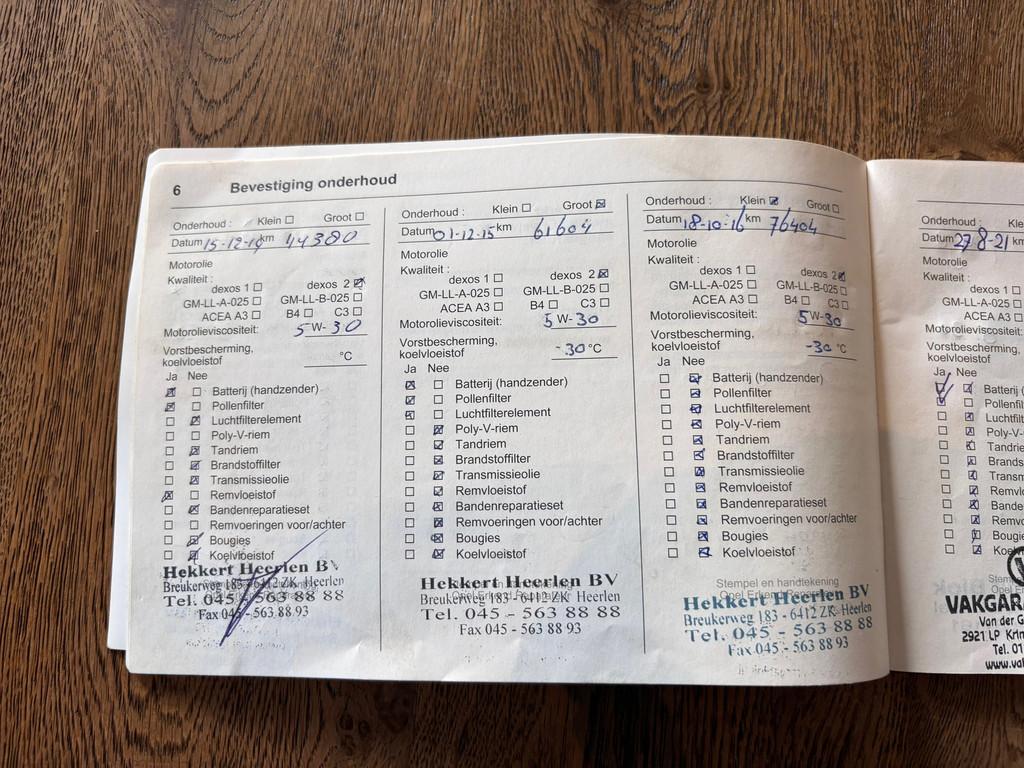 6 Bevestiging onderhoud
Onderhoud : Klein Groot
Datum 15-12-14 km 44380
Motorolie
Kwaliteit :
dexos 1 dexos 2
GM-LL-A-025 GM-LL-B-025
ACEA A3 B4 C3
Motorolieviscositeit: 5W-30
Vorstbescherming,
koelvloeistof °C
Ja Nee
Batterij (handzender)
Pollenfilter
Luchtfilterelement
Poly-V-riem
Tandriem
Brandstoffilter
Transmissieolie
Remvloeistof
Bandenreparatieset
Remvoeringen voor/achter
Bougies
Koelvloeistof
Hekkert Heerlen BV
Breukerweg 183 - 6412 ZK Heerlen
Tel. 045 - 563 88 88
Fax 045 - 563 88 93
Onderhoud : Klein Groot
Datum 01-12-15 km 61604
Motorolie
Kwaliteit :
dexos 1 dexos 2
GM-LL-A-025 GM-LL-B-025
ACEA A3 B4 C3
Motorolieviscositeit: 5W-30
Vorstbescherming,
koelvloeistof -30 °C
Ja Nee
Batterij (handzender)
Pollenfilter
Luchtfilterelement
Poly-V-riem
Tandriem
Brandstoffilter
Transmissieolie
Remvloeistof
Bandenreparatieset
Remvoeringen voor/achter
Bougies
Koelvloeistof
Hekkert Heerlen BV
Breukerweg 183 - 6412 ZK Heerlen
Tel. 045 - 563 88 88
Fax 045 - 563 88 93
Onderhoud : Klein Groot
Datum 18-10-16 km 76404
Motorolie
Kwaliteit :
dexos 1 dexos 2
GM-LL-A-025 GM-LL-B-025
ACEA A3 B4 C3
Motorolieviscositeit: 5W-30
Vorstbescherming,
koelvloeistof -30 °C
Ja Nee
Batterij (handzender)
Pollenfilter
Luchtfilterelement
Poly-V-riem
Tandriem
Brandstoffilter
Transmissieolie
Remvloeistof
Bandenreparatieset
Remvoeringen voor/achter
Bougies
Koelvloeistof
Stempel en handtekening
Hekkert Heerlen BV
Breukerweg 183 - 6412 ZK Heerlen
Tel. 045 - 563 88 88
Fax 045 - 563 88 93
Onderhoud : Klei
Datum 27 8-21 km
Motorolie
Kwaliteit :
dexos 1
GM-LL-A-025
ACEA A3
Motorolieviscositeit:
Vorstbescherming,
koelvloeistof
Ja Nee
Batterij (
Pollenfil
Luchtfilt
Poly-V-
Tandrie
Brands
Transm
Remvlo
Bande
Remvo
Bougie
Koe
VAKGAR
Van der G
2921 LP Krim
Tel. 01
www.va